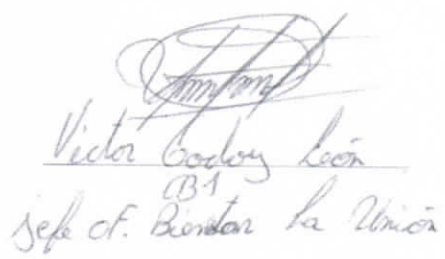 Victor Godoy León
CB1
Jefe OF. Bienestar La Unión